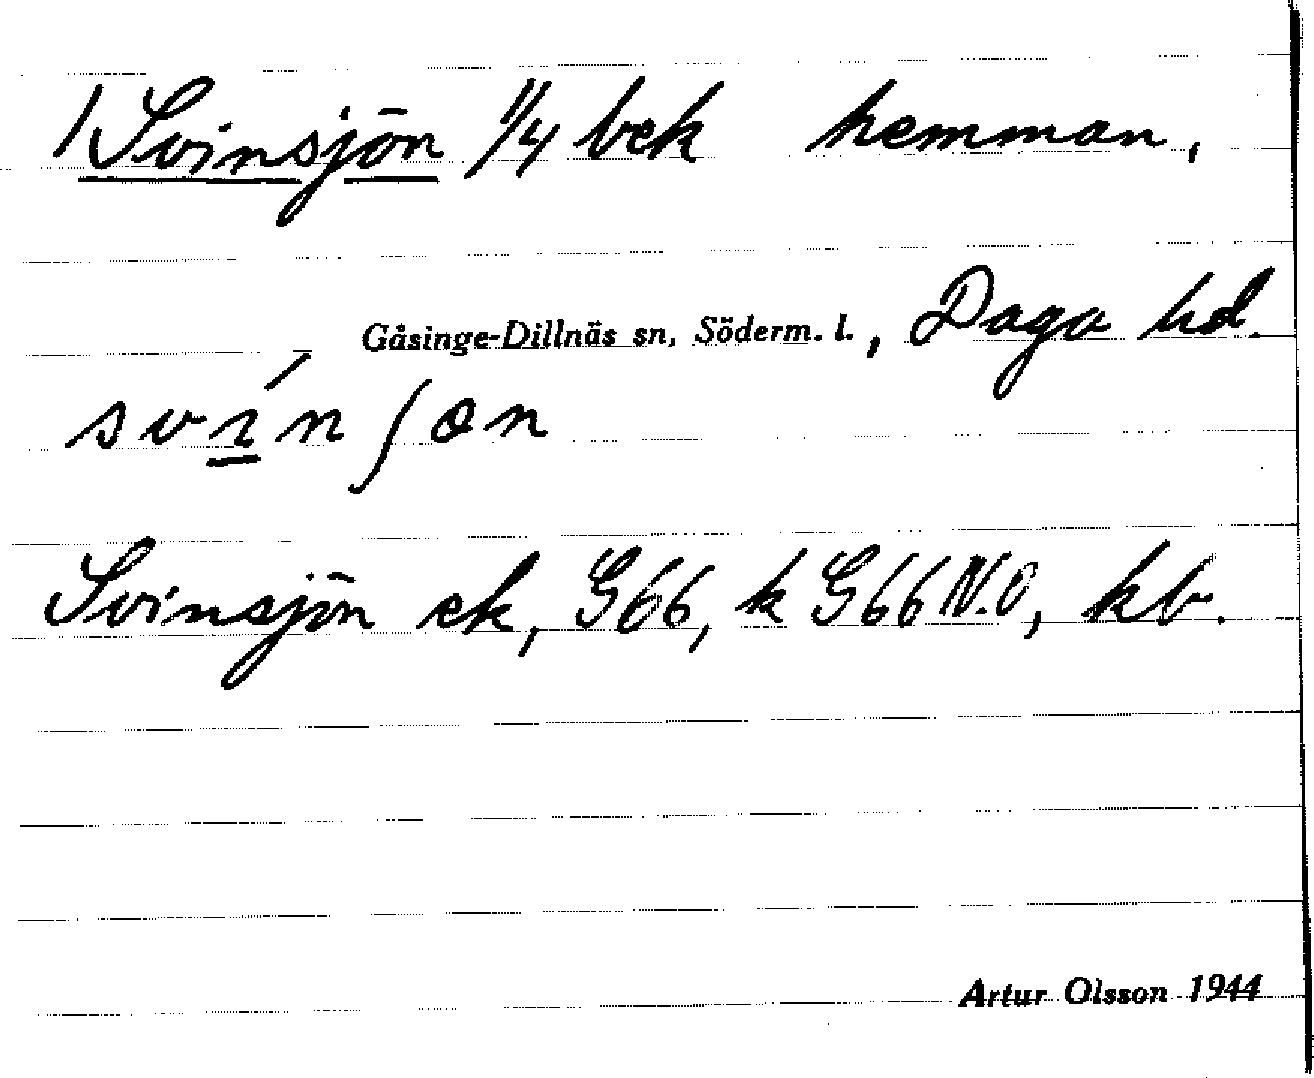 1 Svinsjön 1/4 bek hemman,
Gåsinge-Dillnäs sn, Söderm. l., Daga hd.
sví̱nʃon
Svinsjön ek, G66, k G66 N.O, kb.
Artur Olsson 1944